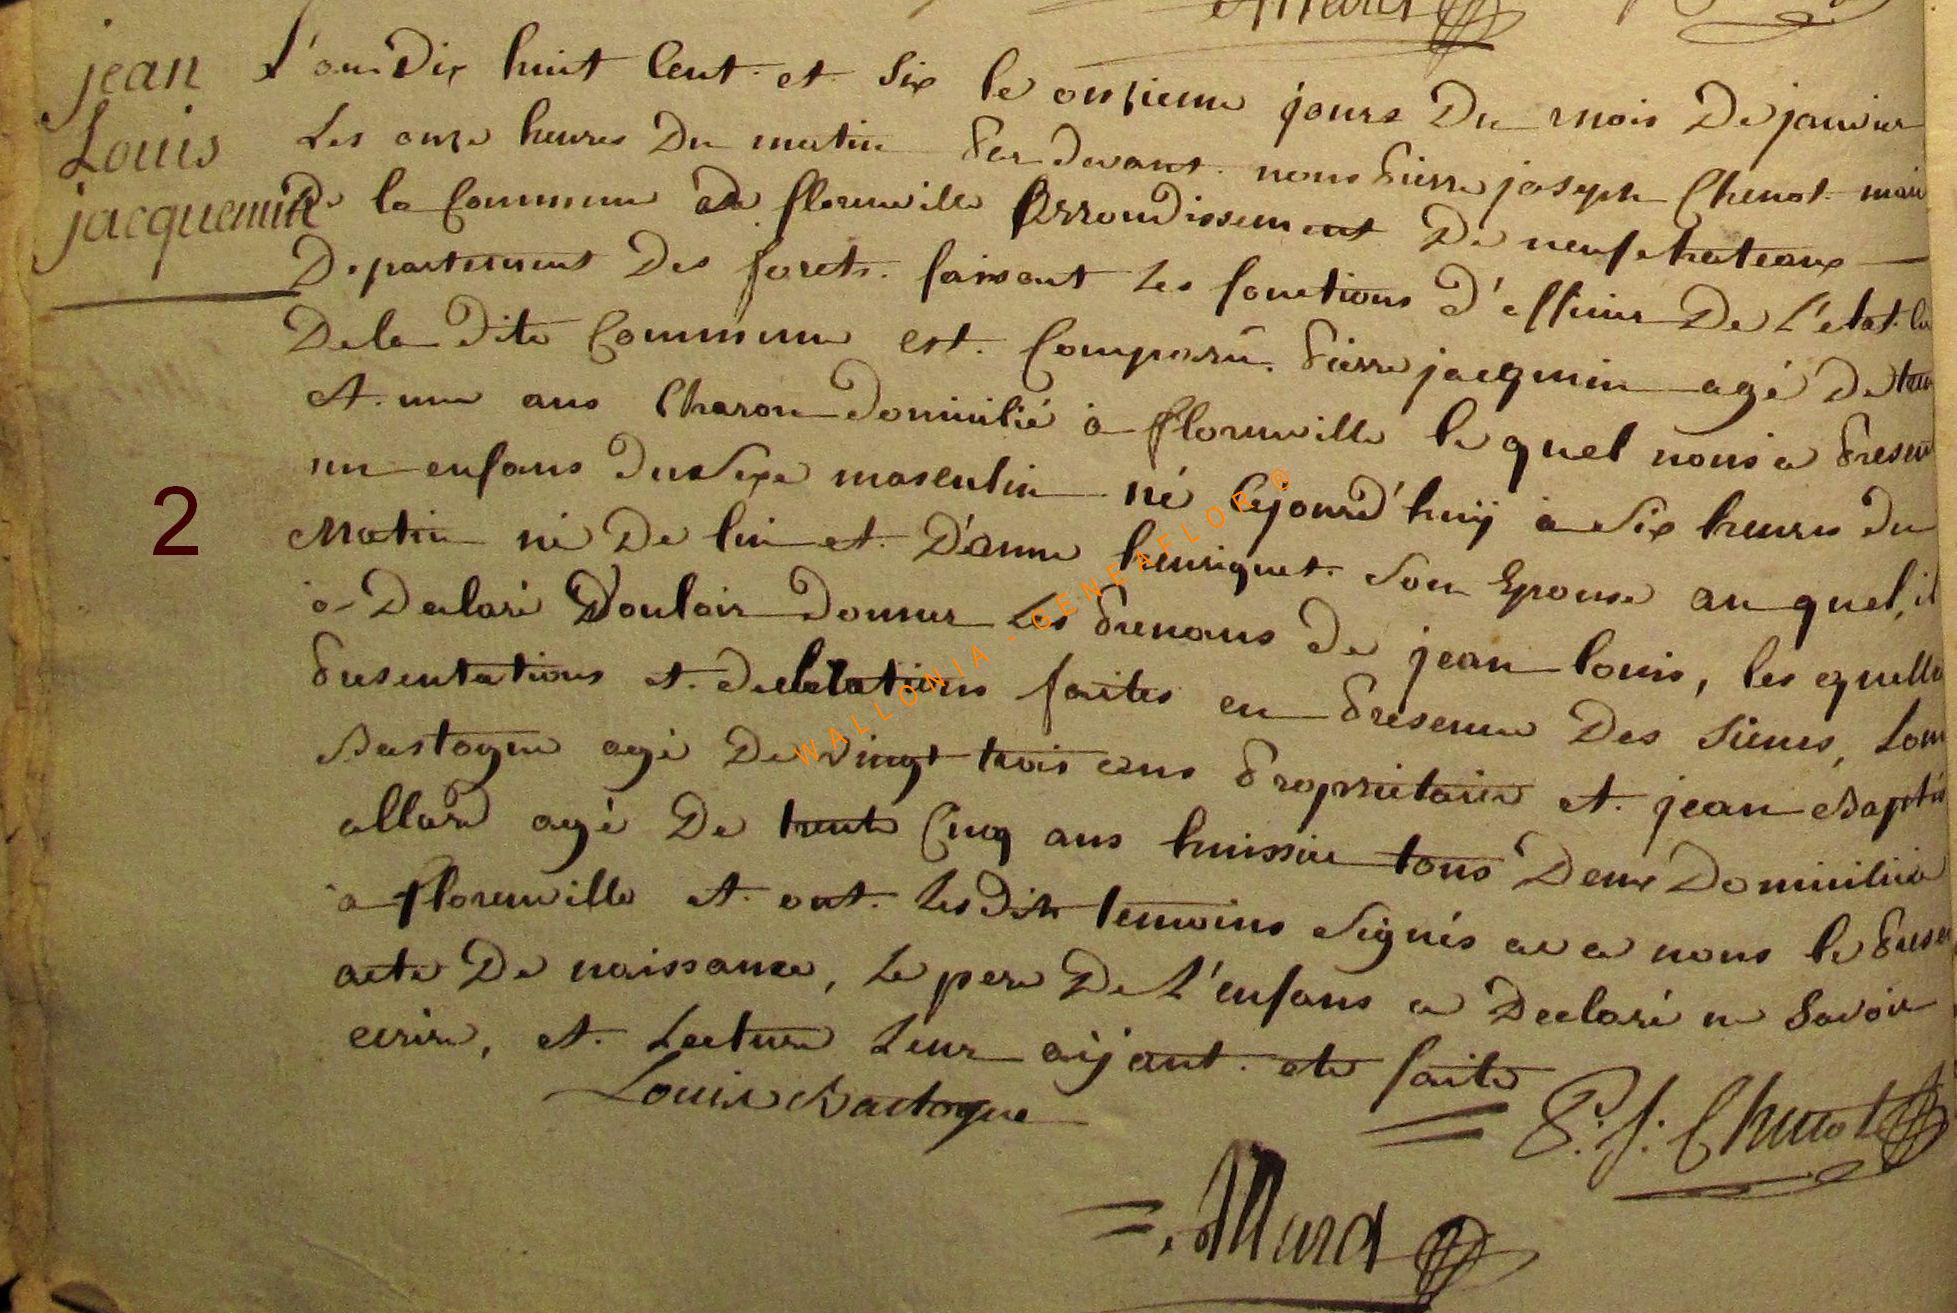 Allard
jean
Louis
jacquemin
2
L'an Dix huit Cent et Six le onzieme jours Du mois De janvier
Les onze heures Du matin Par devant nous Pierre joseph Chenot mair
De la Commune de florenville Arrondissement De neufchateaux
Departement Des forets faisant Les fonctions D'officier De L'etat
De la Dite Commune est Comparu Pierre jacqmin agé De
et une ans Charon Domicilié à florenville le quel nous a Presen
un enfans du Sexe masculin né Cejourd'huij à Six heures du
Matin né De lui et D'anne henriquet Son Epouse au quel, il
à Declaré Vouloir Donner Les Prenoms De jean louis, les quelle
Presentations et declarations faites en Presence Des Sieurs, Loui
Bastogne agé De vingt trois ans Proprietaire et jean Baptis
allard agé De trente Cinq ans huissier tous Deux Domicilié
à florenville et ont Lesdits temoins Signés avec nous le Presen
acte De naissance, Le pere De L'enfans a Declaré ne Savoir
ecrire, et Lecture Leur aijant eté faite
Louis Bastogne
P. J. Chenot
Allard
WALLONIA - GENEAFLOR©